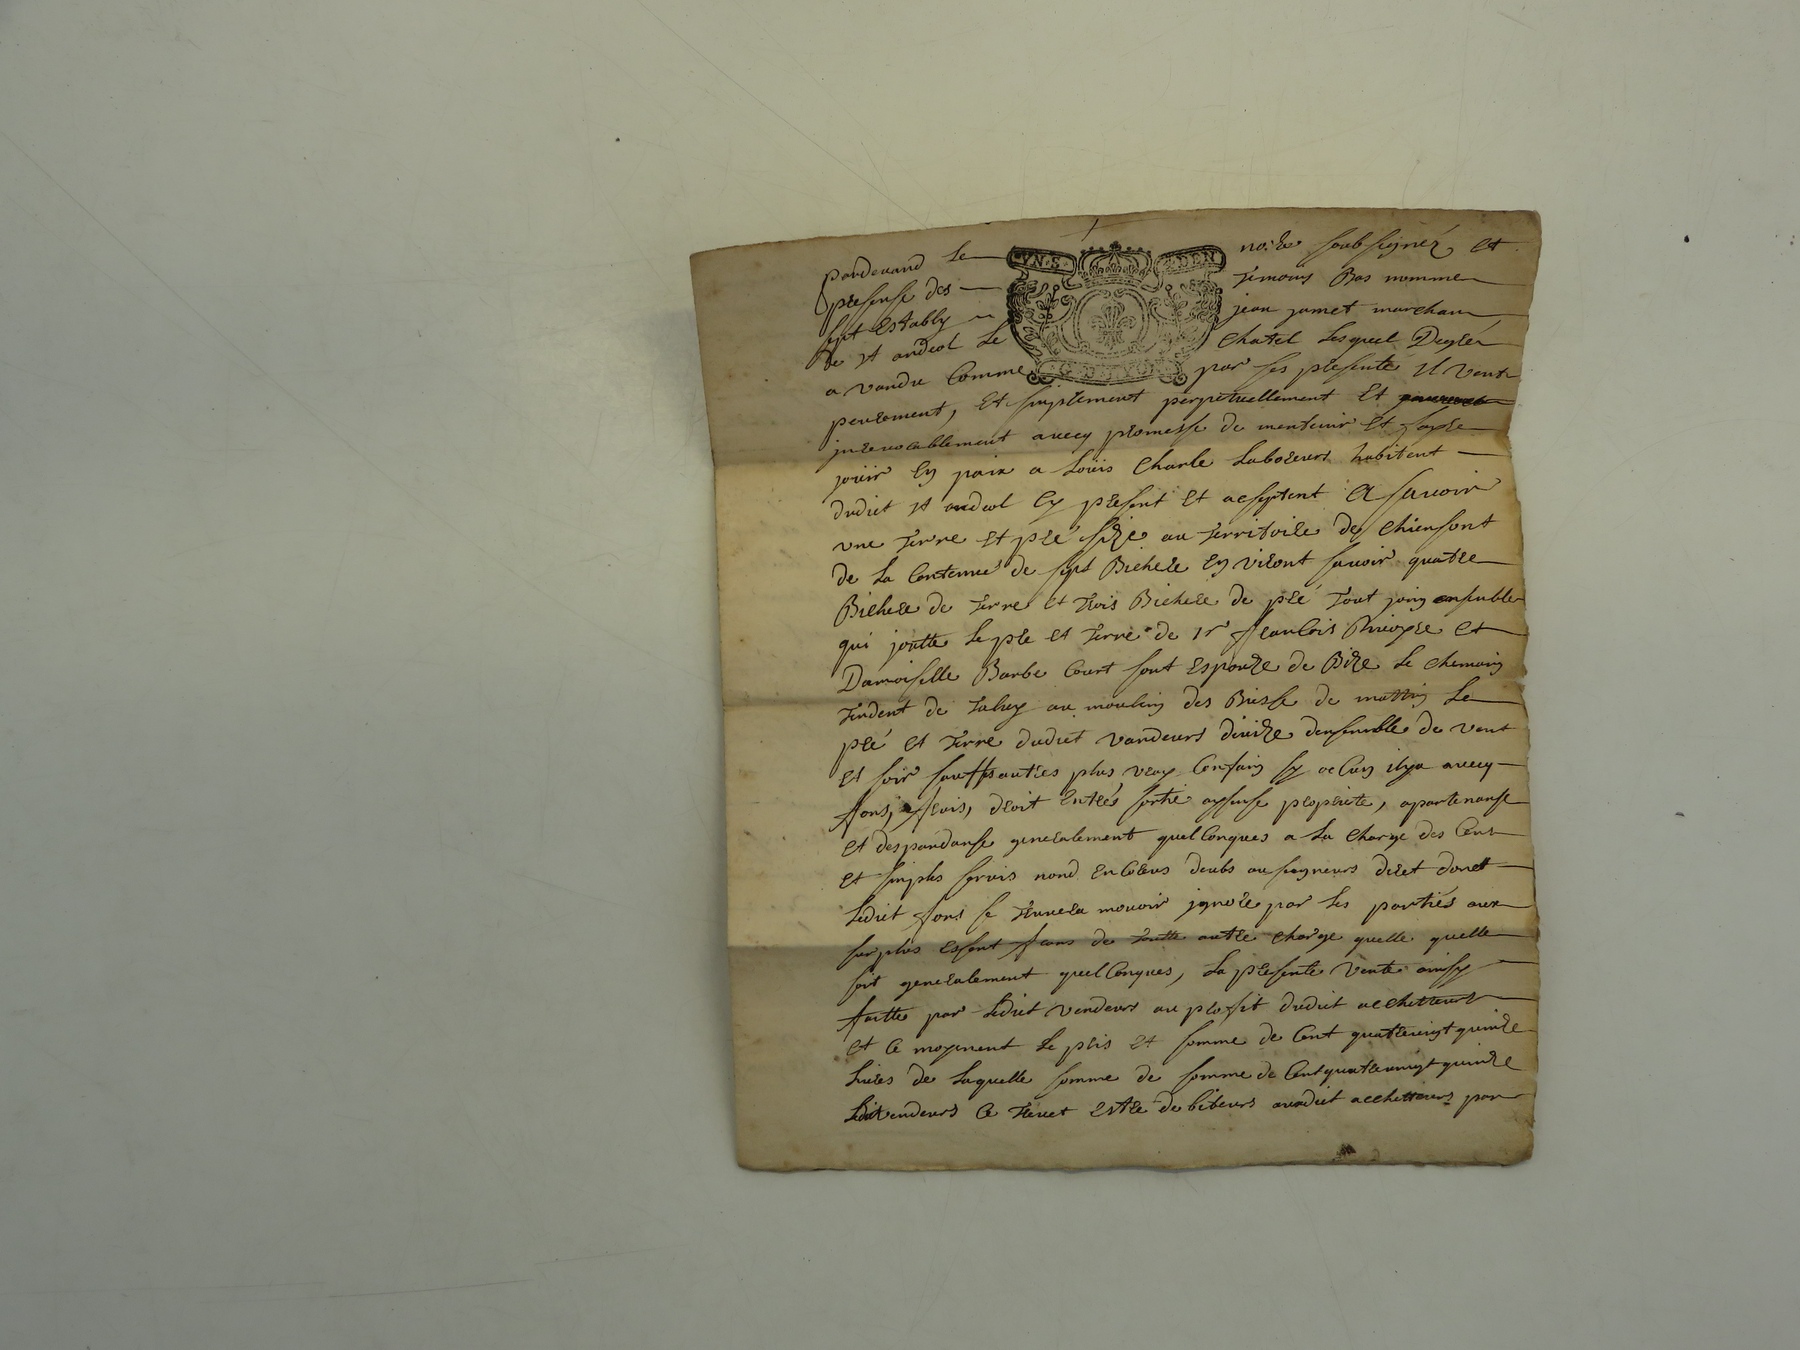 pardevand le no:re soubsigner et
presense des temoins Bas nomme
fut estably jean jamet marchant
de st andeol le Chatel lesquel De gré
a vandu Comme par ses presente il vent
VN S DEN
G DE LYON
purement, et simplement perpetuellement et
inrevocablement avecq promesse de mentenir et fayre
jouir en paix a Louis Charle laboreurs habitent
dudict st andeol cy present et aceptent A savoir
une terre et pré size au territoire de Chienfont
de la Contenue de sept Bichere en viront savoir quatre
Bichere de terre et trois Bichere de pré tout join ensemble
qui joutte le pre et terre de sr francois et
Damoiselle Barbe Court sont espouze de Bize le chemain
tendent de au moulin des de mattin le
pré et terre dudict vandeurs divize densemble de vent
et soir sauf ses autres plus vray Confain sy aCun ilya avecq
fons, frois, droit entrés sortie aysense propriete, apartenanse
et despandanse generalement quelConques a la charge des Cens
et simples servis nond enCoreus deubs au seigneurs diret donct
ledict fons se trouvera mouvoir jgnore par les partiés aux
surplus essent franc de toutte autre charge quelle quelle
soit generalement quelConques, la presente vente ainsy
faitte par ledict vendeurs au profit dudict acchetteurs
et Ce moyenent le pris et somme de Cent quatrevingt quinze
livres de laquelle somme de somme de Centquatrevingt quinze
ledit vendeurs Ce treuet estre debiteurs audict acchetteurs par